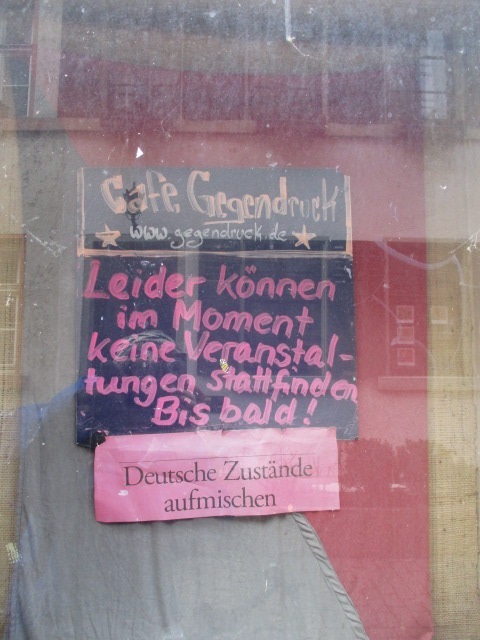 Café Gegendruck
www.gegendruck.de
Leider können
im Moment
keine Veranstal-
tungen stattfinden
Bis bald!
Deutsche Zustände
aufmischen